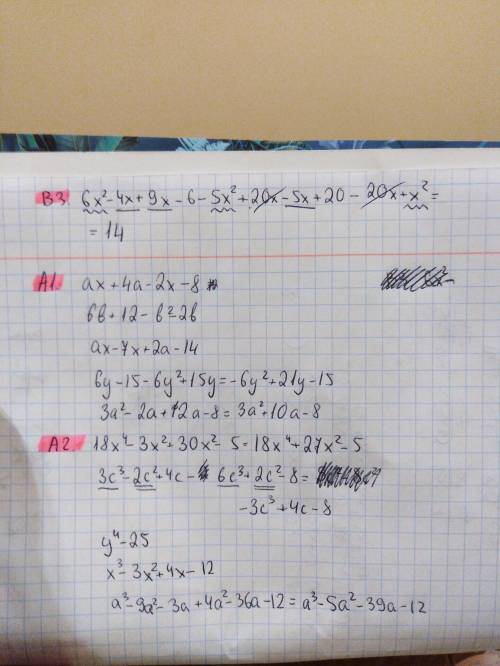 В3. 6x² - 4x + 9x - 6 - 5x² + 20x - 5x + 20 - 20x + x² =
= 14
А1. ax + 4a - 2x - 8
6в + 12 - в² - 2в
ax - 7x + 2a - 14
6y - 15 - 6y² + 15y = -6y² + 21y - 15
3a² - 2a + 12a - 8 = 3a² + 10a - 8
А2. 18x⁴ - 3x² + 30x² - 5 = 18x⁴ + 27x² - 5
3c³ - 2c² + 4c - 6c³ + 2c² - 8 =
-3c³ + 4c - 8
y⁴ - 25
x³ - 3x² + 4x - 12
a³ - 9a² - 3a + 4a² - 36a - 12 = a³ - 5a² - 39a - 12